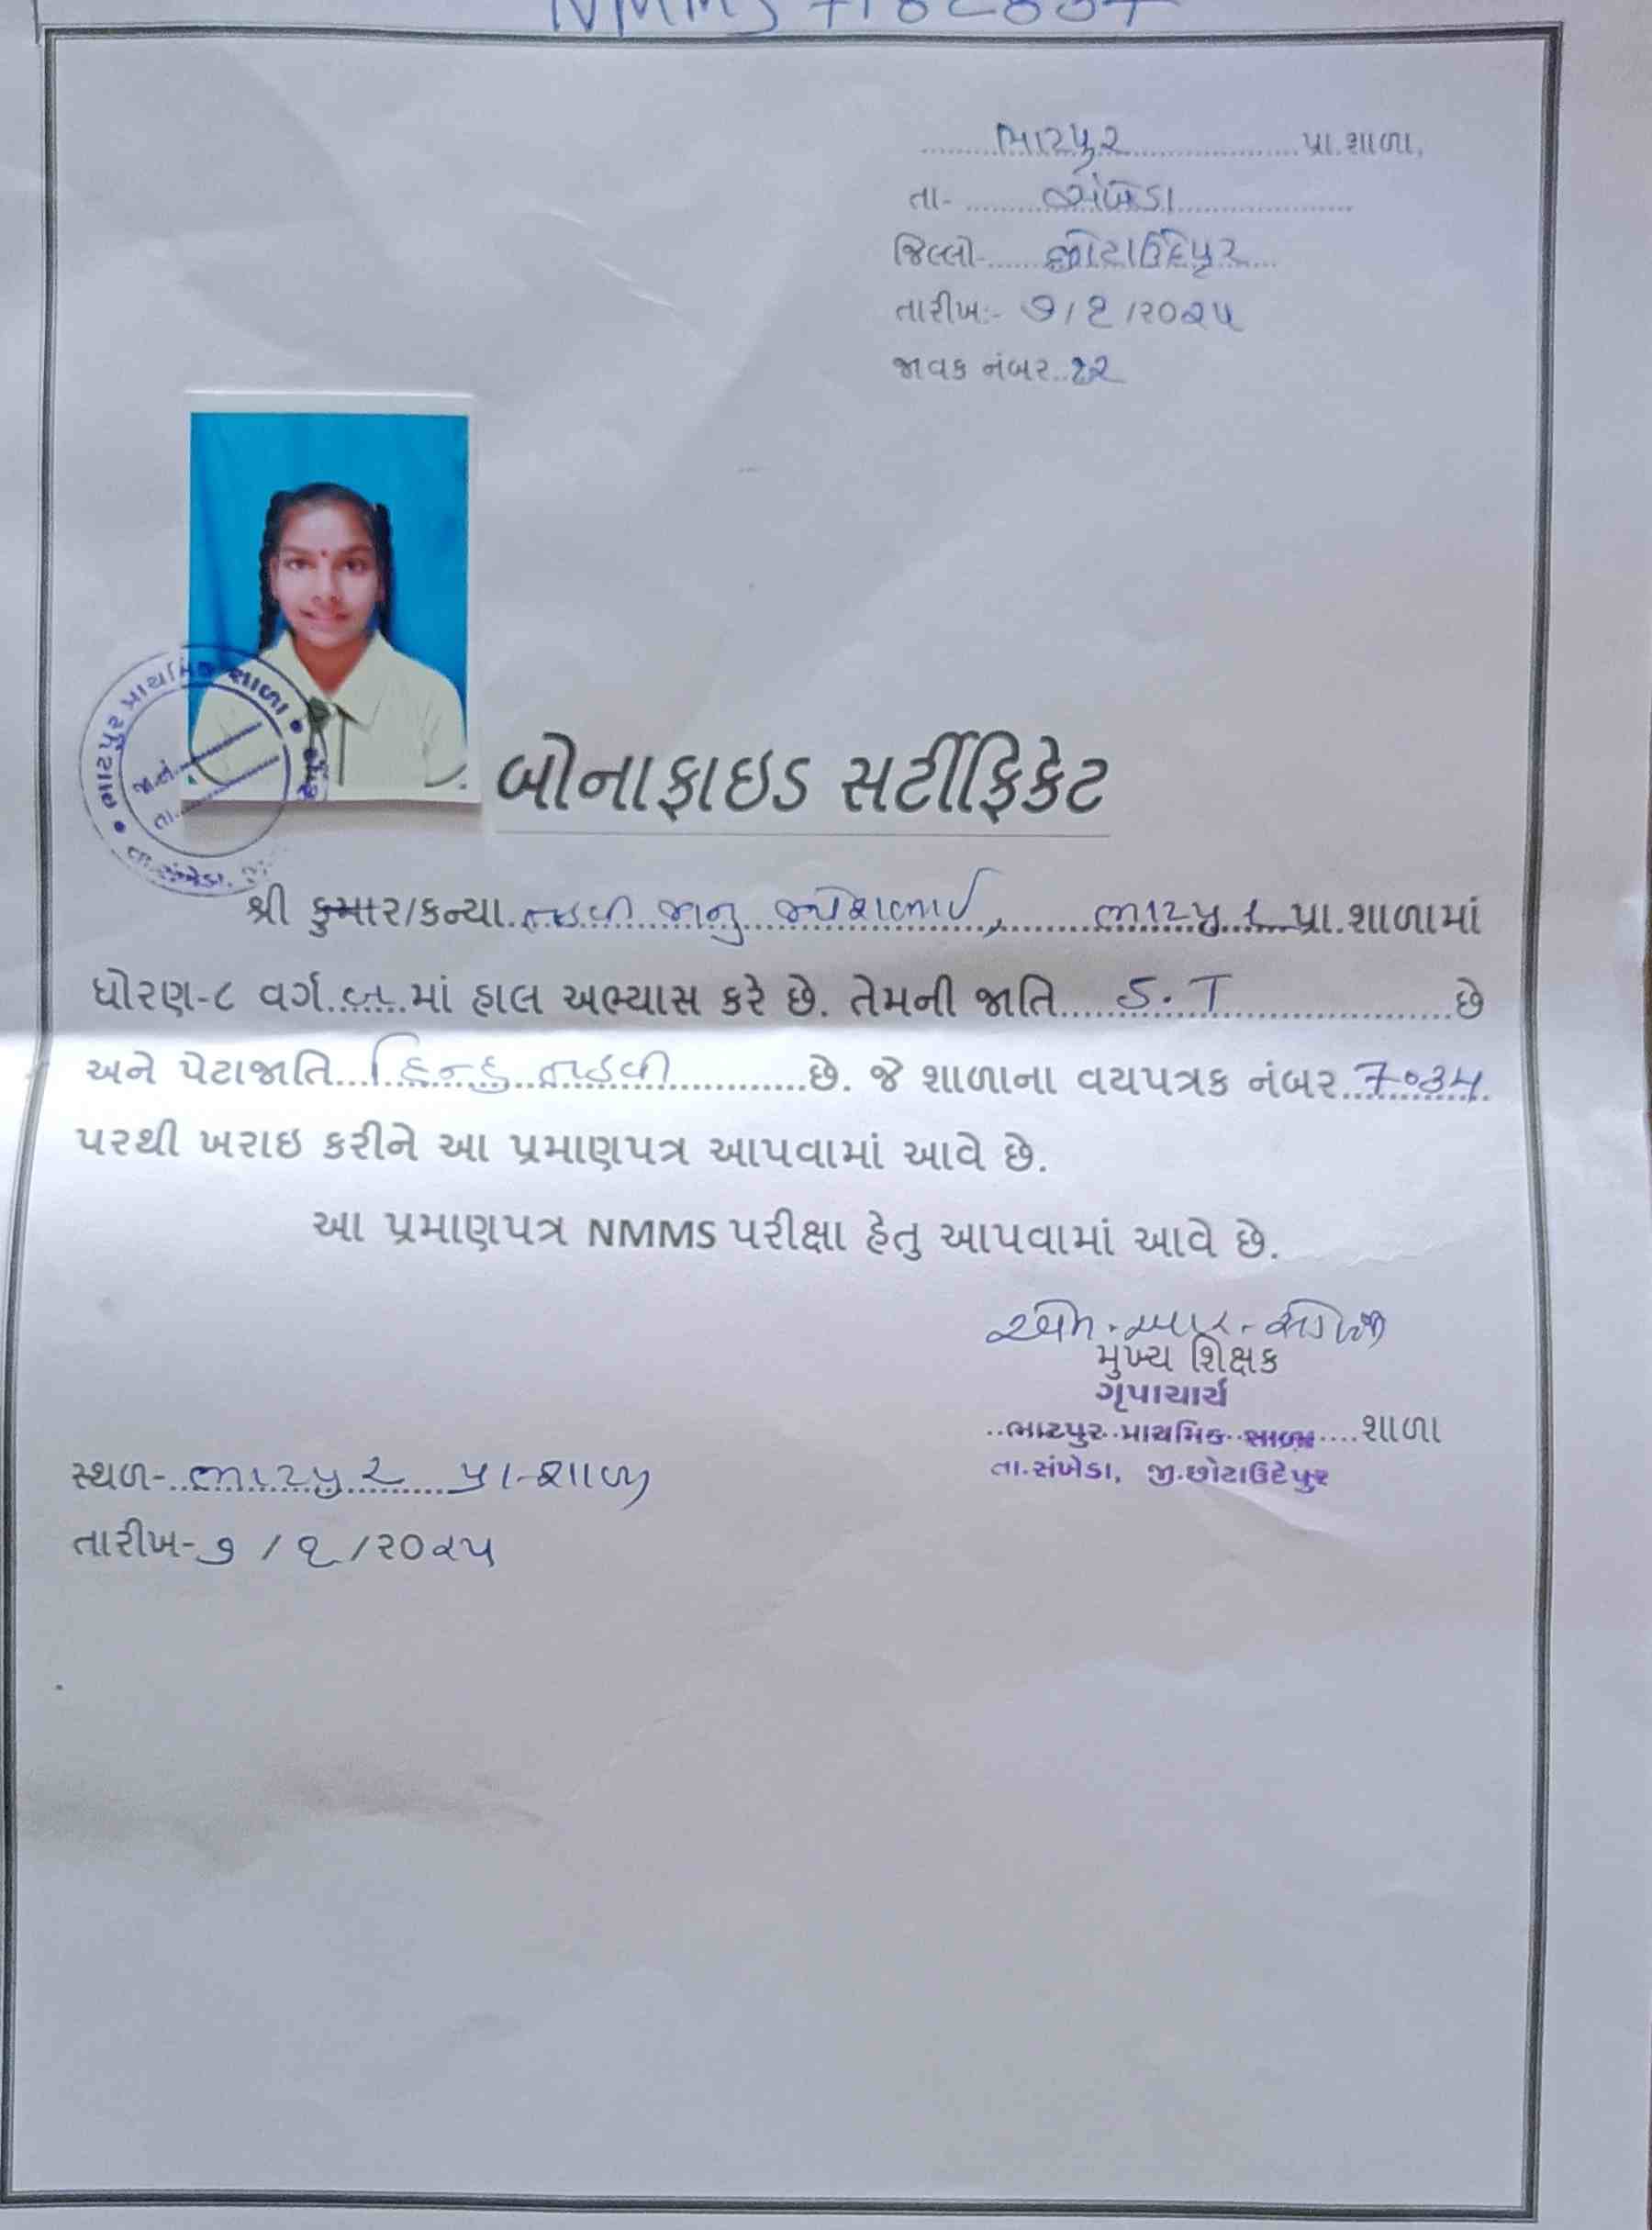 NMMS
ભાટપુર પ્રા.શાળા,
તા- સંખેડા
જિલ્લો- છોટાઉદેપુર
તારીખ:- ૭/૧/૨૦૨૫
જાવક નંબર..૨૨
ભાટપુર પ્રાથમિક શાળા
જા.નં.
તા.
તા.સંખેડા.
બોનાફાઇડ સર્ટીફિકેટ
શ્રી કુમાર/કન્યા.તડવી જાનુ ભાટપુર પ્રા.શાળામાં
ધોરણ-૮ વર્ગ.બ.માં હાલ અભ્યાસ કરે છે. તેમની જાતિ S.T છે
અને પેટાજાતિ હિન્દુ તડવી છે. જે શાળાના વયપત્રક નંબર
પરથી ખરાઇ કરીને આ પ્રમાણપત્ર આપવામાં આવે છે.
આ પ્રમાણપત્ર NMMS પરીક્ષા હેતુ આપવામાં આવે છે.
એમ.આર.
મુખ્ય શિક્ષક
ગૃપાચાર્ય
ભાટપુર પ્રાથમિક શાળા શાળા
તા.સંખેડા, જી.છોટાઉદેપુર
સ્થળ- ભાટપુર પ્રા-શાળા
તારીખ-૭/૧/૨૦૨૫